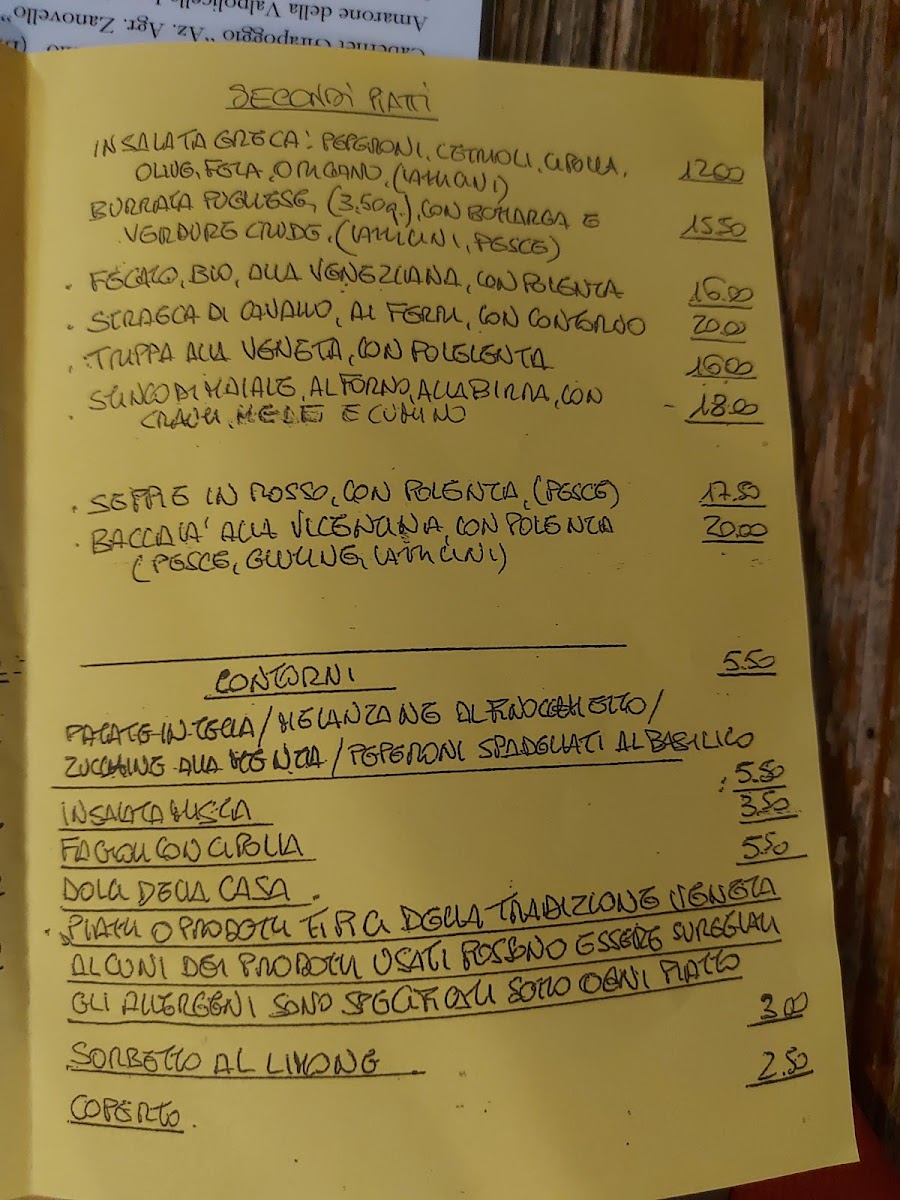 Amarone della Valpolicella
Cabernet Girapoggio "Az. Agr. Zanovello"
SECONDI PIATTI
INSALATA GRECA: PEPERONI, CETRIOLI, CIPOLLA,
OLIVE, FETA, ORIGANO, (LATTICINI) 12.00
BURRATA PUGLIESE, (3,50g.), CON BOTTARGA E
VERDURE CRUDE, (LATTICINI, PESCE) 15.50
. FEGATO, BIO, ALLA VENEZIANA, CON POLENTA 16.00
. STRACCA DI CAVALLO, AI FERRI, CON CONTORNO 20.00
. TRIPPA ALLA VENETA, CON POLELENTA 16.00
. STINCO DI MAIALE, AL FORNO, ALLA BIRRA, CON
CRAUTI, MELE E CUMINO - 18.00
. SEPPIE IN ROSSO, CON POLENTA, (PESCE) 17.50
. BACCALA' ALLA VICENTINA, CON POLENTA 20.00
(PESCE, GLUTINE, LATTICINI)
CONTORNI 5.50
PATATE IN TECIA / MELANZANE AL FINOCCHIETTO /
ZUCCHINE ALLA MENTA / PEPERONI SPADELLATI AL BASILICO
INSALATA MISTA : 5.50
FAGIOLI CON CIPOLLA 3.50
DOLCI DELLA CASA . 5.50
. PIATTI O PRODOTTI TIPICI DELLA TRADIZIONE VENETA
ALCUNI DEI PRODOTTI USATI POSSONO ESSERE SURGELATI
GLI ALLERGENI SONO SPECIFICATI SOTTO OGNI PIATTO
SORBETTO AL LIMONE . 3.00
COPERTO . 2.50